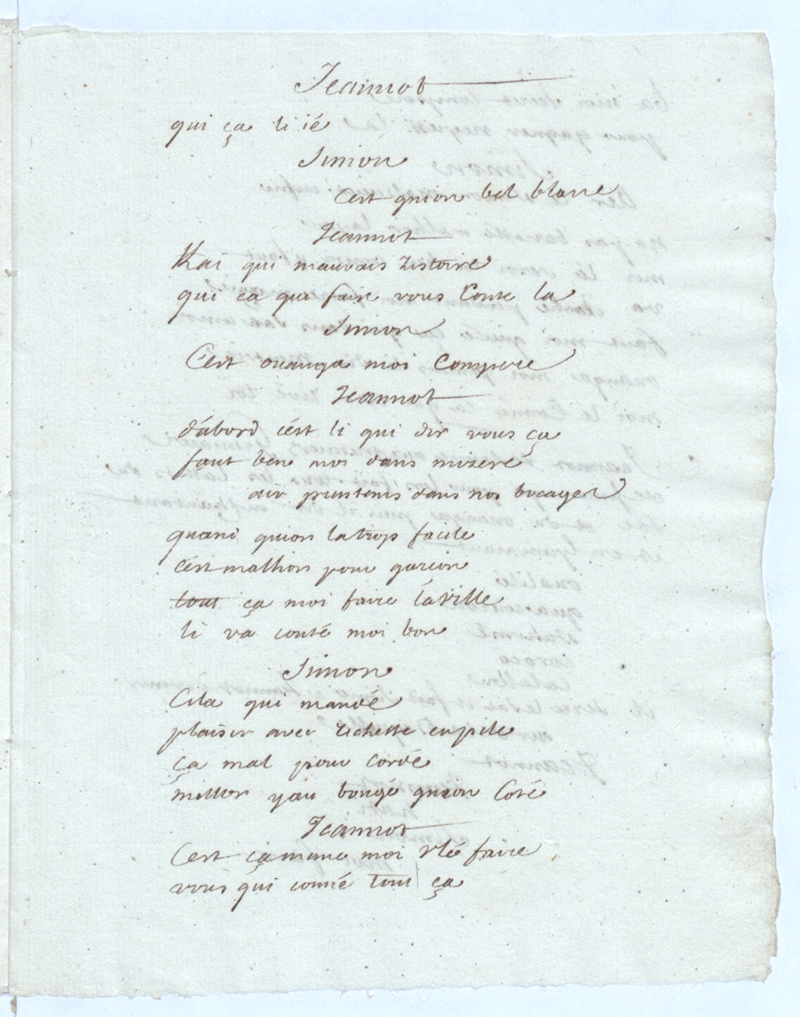 Jeannot
qui ça li ié
Simon
C'est quion bel blanc
Jeannot
Kai qui mauvais zistoire
qui ça qui faire vous Conte la
Simon
C'est ouanga moi Compere
Jeannot
d'abord cést li qui dir vous ça
faut ben moi dans mizere
air printems dans nos bocages
quand quion la trop facile
cést malhor pour garcon
tout ça moi faire la ville
li va conté moi bon
Simon
Cila qui mandé
plaisir avec zichette en pile
ça mal pour cordé
metter yau bouge quion Coté
Jeannot
C'est ça mane moi vlé faire
vous qui conné tout ça